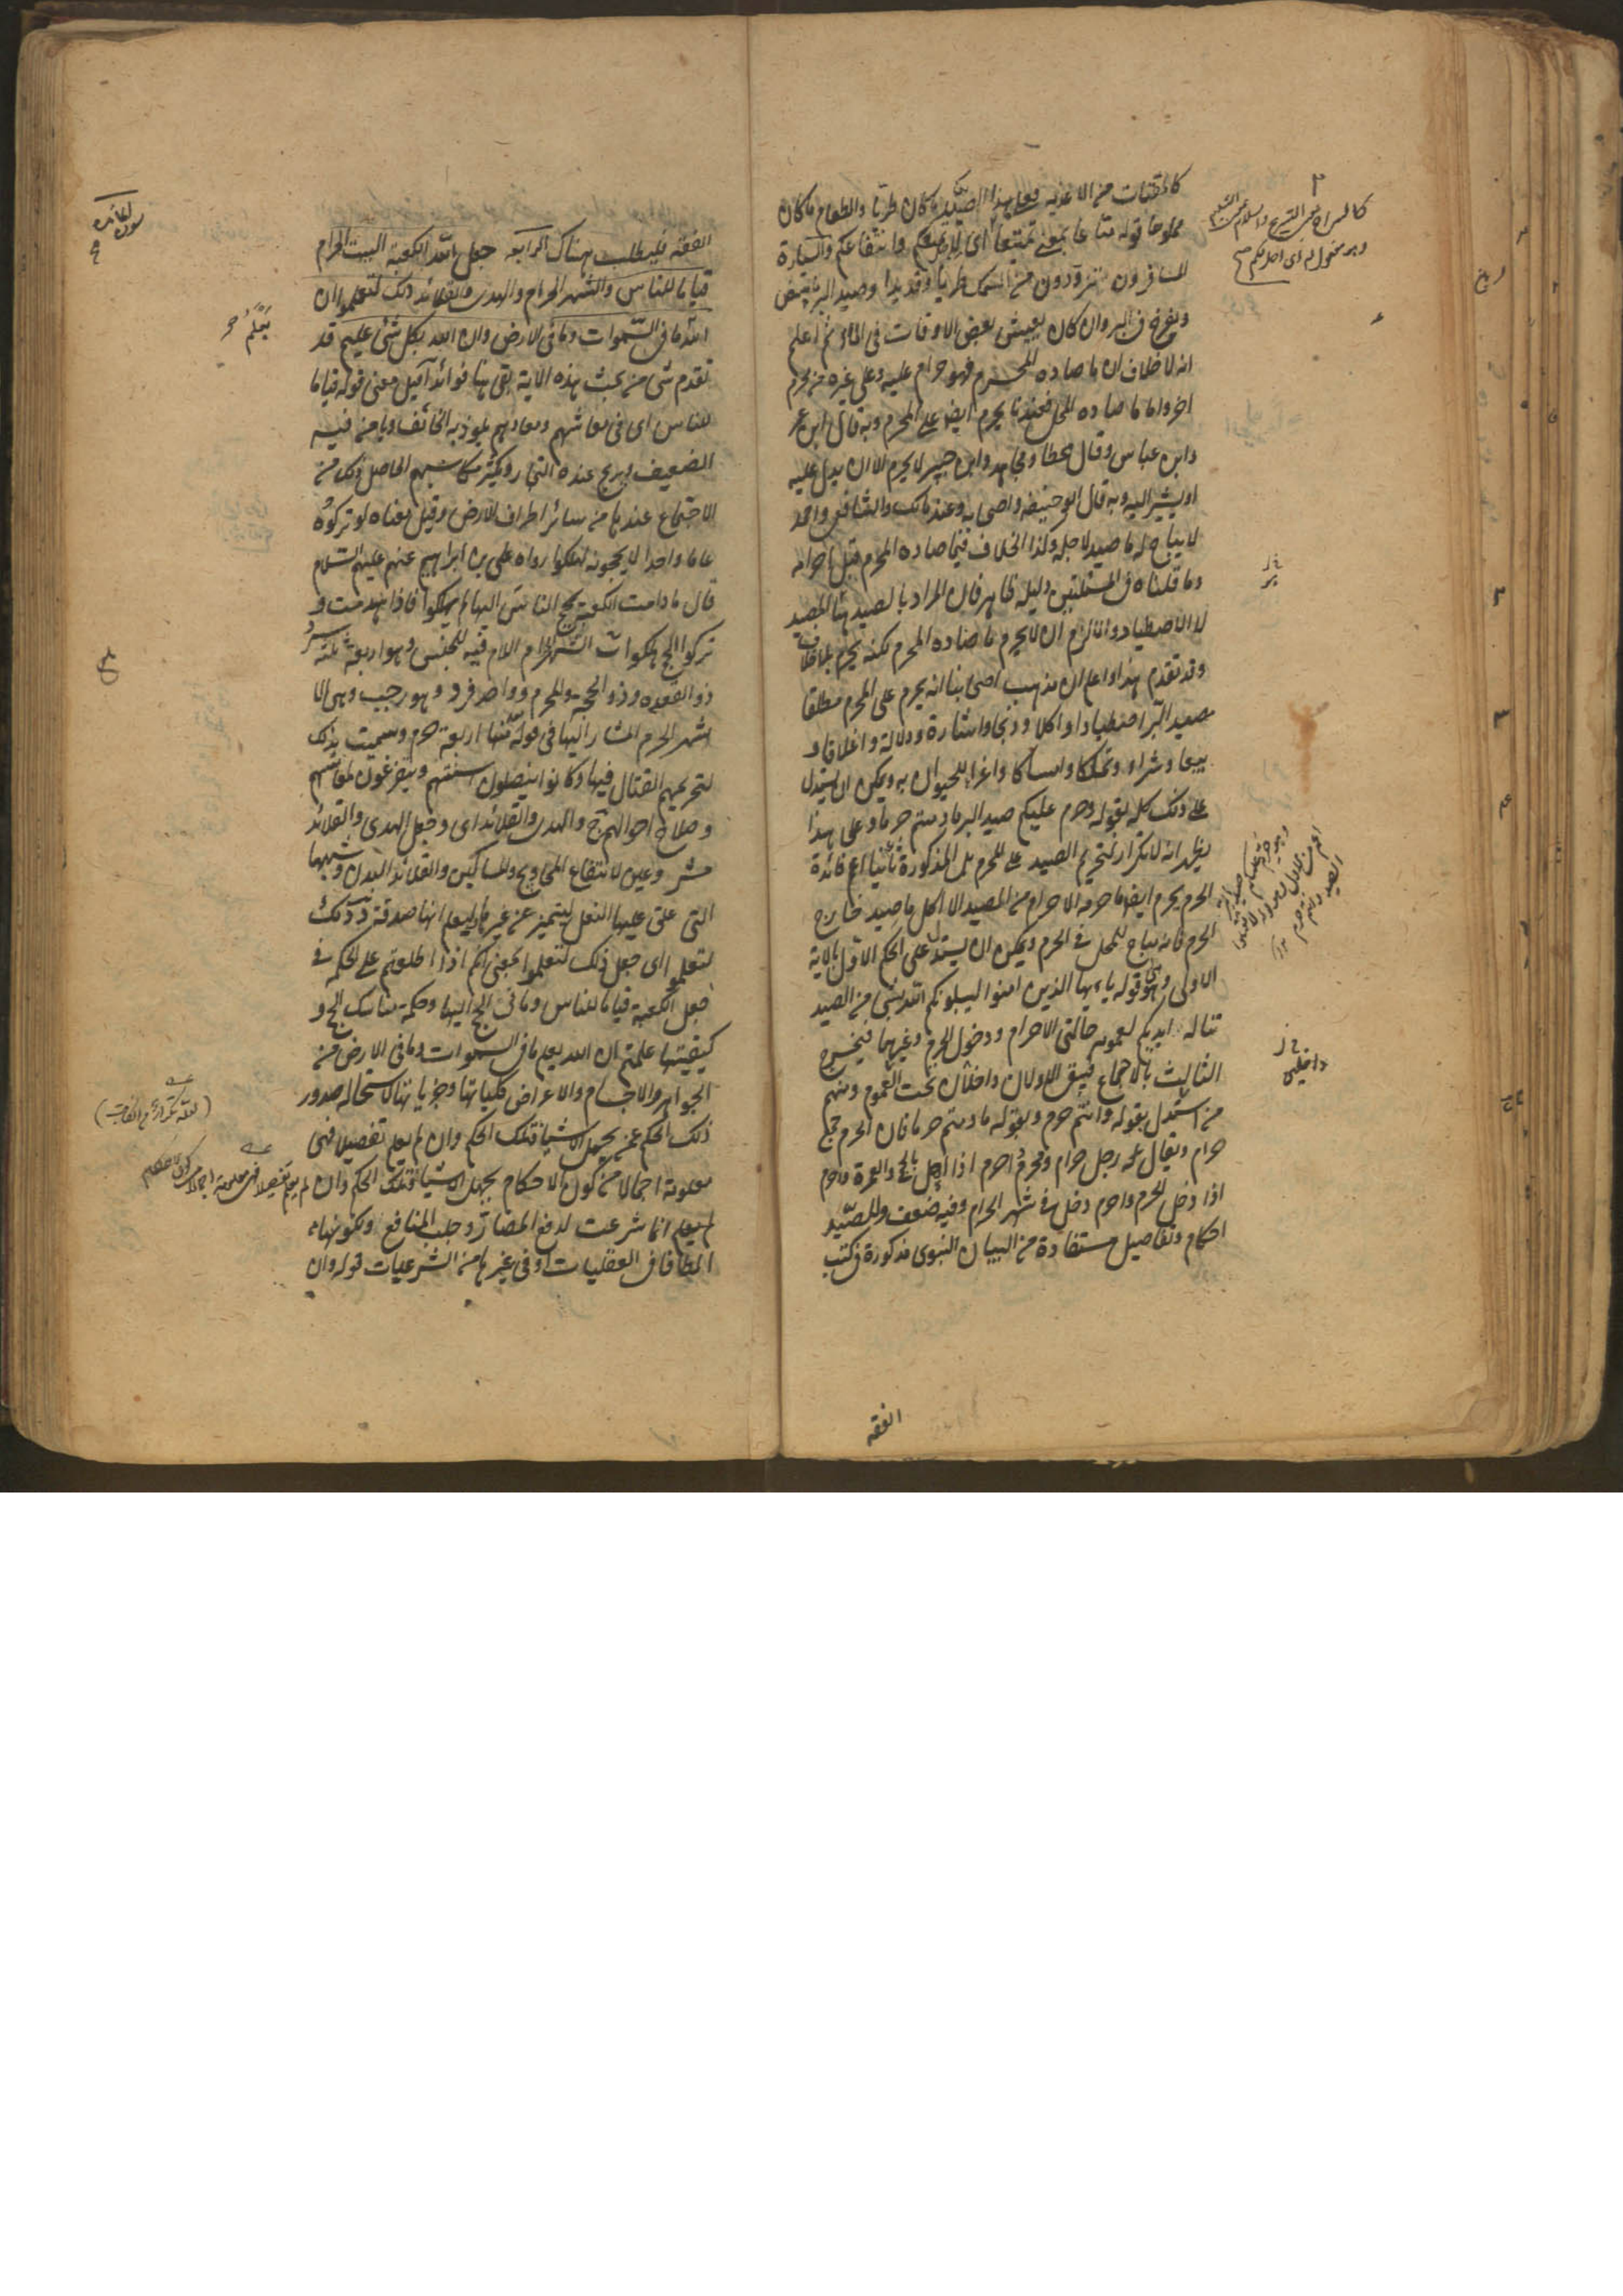 كالمقتات من الاغذية فعلى هذا الصيد ما كان طريا والطعام ما كان
مملوحا قوله متاعا بمعنى تمتيعا اى لاجل تمتعكم وانتفاعكم والسيارة
المسافرون تتزودون من السمك طريا وقديدا وصيد البر ما يبيض
ويفرخ فى البر وان كان يعيش بعض الاوقات فى الماء ثم اعلم
انه لا خلاف ان ما صاده المحرم فهو حرام عليه وعلى غيره من محرم
اخر واما ما صاده المحل فعندنا يحرم ايضا على المحرم وبه قال ابن عمر
وابن عباس وقال عطا ومجاهد وابن جبير لا يحرم الا ان يدل عليه
او يشير اليه وبه قال ابو حنيفه واصحابه وعند مالك والشافعى واحمد
لا يباح له ما صيد لاجله ولذا الخلاف فيما صاده المحرم قبل احرامه
وما قلناه فى المسئلتين دليله ظاهر فان المراد بالصيد هنا المصيد
لا الاصطياد والا لزم ان لا يحرم ما صاده المحرم لكنه يحرم بلا خلاف
وقد تقدم هذا واعلم ان مذهب اصحابنا انه يحرم على المحرم مطلقا
مصيد البر اصطيادا واكلا وذبحا واشارة ودلالة واغلاقا و
بيعا وشراء وتملكا وامساكا واغراء للحيوان به ويمكن ان يستدل
على ذلك كله بقوله وحرم عليكم صيد البر ما دمتم حرما وعلى هذا
يظهر انه لا تكرار لتحريم الصيد على المحرم بل المذكورة ثانيا اعم فائدة
الحرم يحرم ايضا ما حرمه الاحرام من المصيد الا اكل ما صيد خارج
الحرم فانه يباح للمحل فى الحرم ويمكن ان يستدل على الحكم الاول بالاية
الاولى وهى قوله يا ايها الذين امنوا ليبلونكم الله بشئ من الصيد
تناله ايديكم لعمومه حالتى الاحرام ودخول الحرم وغيرهما فيخرج
الثالث بالاجماع فيبقى الاولان داخلان تحت العموم ومنهم
من استدل بقوله وانتم حرم وبقوله ما دمتم حرما فان الحرم جمع
حرام ويقال رجل حرام ومحرم احرم اذا اهل بالحج والعمرة واحرم
اذا دخل الحرم واحرم دخل فى شهر الحرام وفيه ضعف وللصيد
احكام وتفاصيل مستفادة من البيان النبوى مذكورة فى كتب
الفقه
داخلين
الفقه فليطلب هناك الرابعه جعل الله الكعبة البيت الحرام
قياما للناس والشهر الحرام والهدى والقلائد ذلك لتعلموا ان
الله ما فى السموات وما فى الارض وان الله بكل شئ عليم قد
تقدم شئ من بحث هذه الاية بقى هنا فوائد آ قيل معنى قوله قياما
للناس اى فى معاشهم ومعادهم يلوذ به الخائف ويامن فيه
الضعيف ويربح عنده التجار ويكثر مكاسبهم الحاصل ذلك من
الاجتماع عندها من سائر اطراف الارض وقيل معناه لو تركوه
عاما واحدا لا يحجونه لهلكوا رواه على بن ابراهيم عنهم عليهم السلام
قال ما دامت الكعبة يحج الناس اليها لم يهلكوا فاذا هدمت و
تركوا الحج هلكوا ب الشهر الحرام اللام فيه للجنس وهو اربعة ثلثة سرد
ذو القعده وذو الحجة والمحرم وواحد فرد وهو رجب وهى الا
شهر الحرم المشار اليها فى قوله منها اربعة حرم وسميت بذلك
لتحريمهم القتال فيها وكانوا ينصلون اسنتهم ويتفرغون لمعاشهم
وصلاح احوالهم ج والهدى والقلائد اى وجعل الهدى والقلائد
مشروعين لانتفاع المحاويج والمساكين والقلائد البدن وشبهها
التى علق عليها النعل ليتميز عن غيرها ليعلم انها صدقة د ذلك
لتعلموا اى جعل ذلك لتعلموا بمعنى انكم اذا اطلعتم على الحكمه فى
جعل الكعبة قياما للناس وما فى الحج اليها وحكمة مناسك الحج و
كيفيتها علمتم ان الله يعلم ما فى السموات وما فى الارض من
الجواهر والاجسام والاعراض كلياتها وجزياتها لاستحاله صدور
ذلك الحكم عمن يجهل الاشيا فتلك الحكم وان لم يعلم تفصيلا فهى
معلومة اجمالا من كون الاحكام يجهل الاشيا فتلك الحكم وان لم يعلم تفصيلا فهى معلومة اجمالا من كون الاحكام
لم يعلم انما شرعت لدفع المضار وجلب المنافع ولكونها
الطافا فى العقليات او فى غيرها من الشرعيات قوله وان